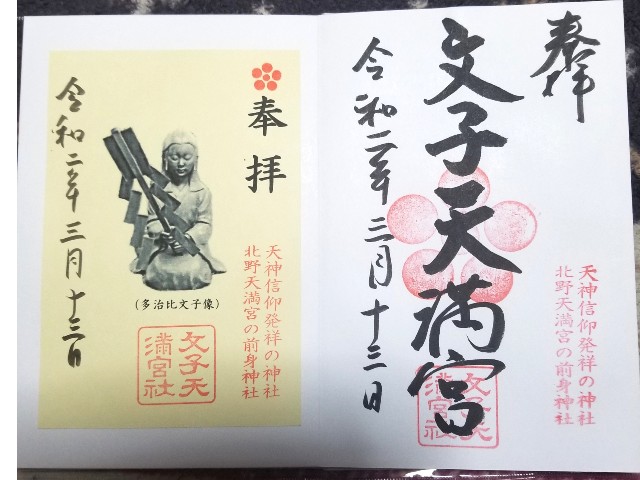 奉拝
文子天満宮
令和二年三月十三日
天神信仰発祥の神社
北野天満宮の前身神社
文子天
満宮社
奉拝
天神信仰発祥の神社
北野天満宮の前身神社
(多治比文子像)
文子天
満宮社
令和二年三月十三日